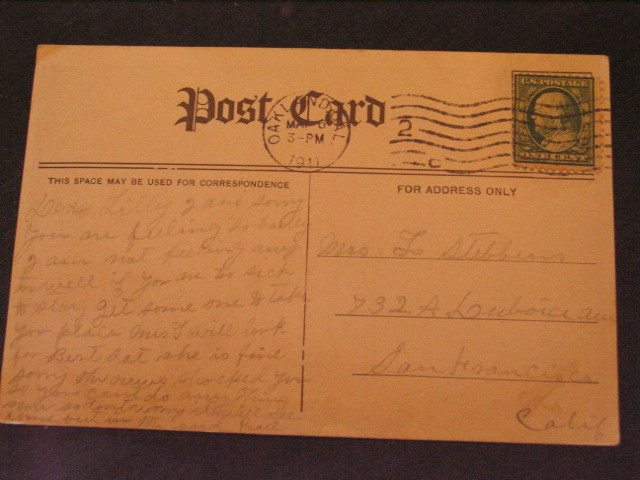 Post Card
OAKLAND, CAL.
MAR 6
3-PM
1911
2
C
U.S. POSTAGE
ONE CENT
THIS SPACE MAY BE USED FOR CORRESPONDENCE
FOR ADDRESS ONLY
Dear Lilly I am sorry
you are feeling so badly
I am not feeling any
to well if you are to sick
to stay get some one to take
your place Mrs. I will look
for Bert Sat she is fine
sorry the news shocked you
so you can do any thing
come out in the end
Mrs L Stebbins
732 A Duboice ave
San Francisco
Calif